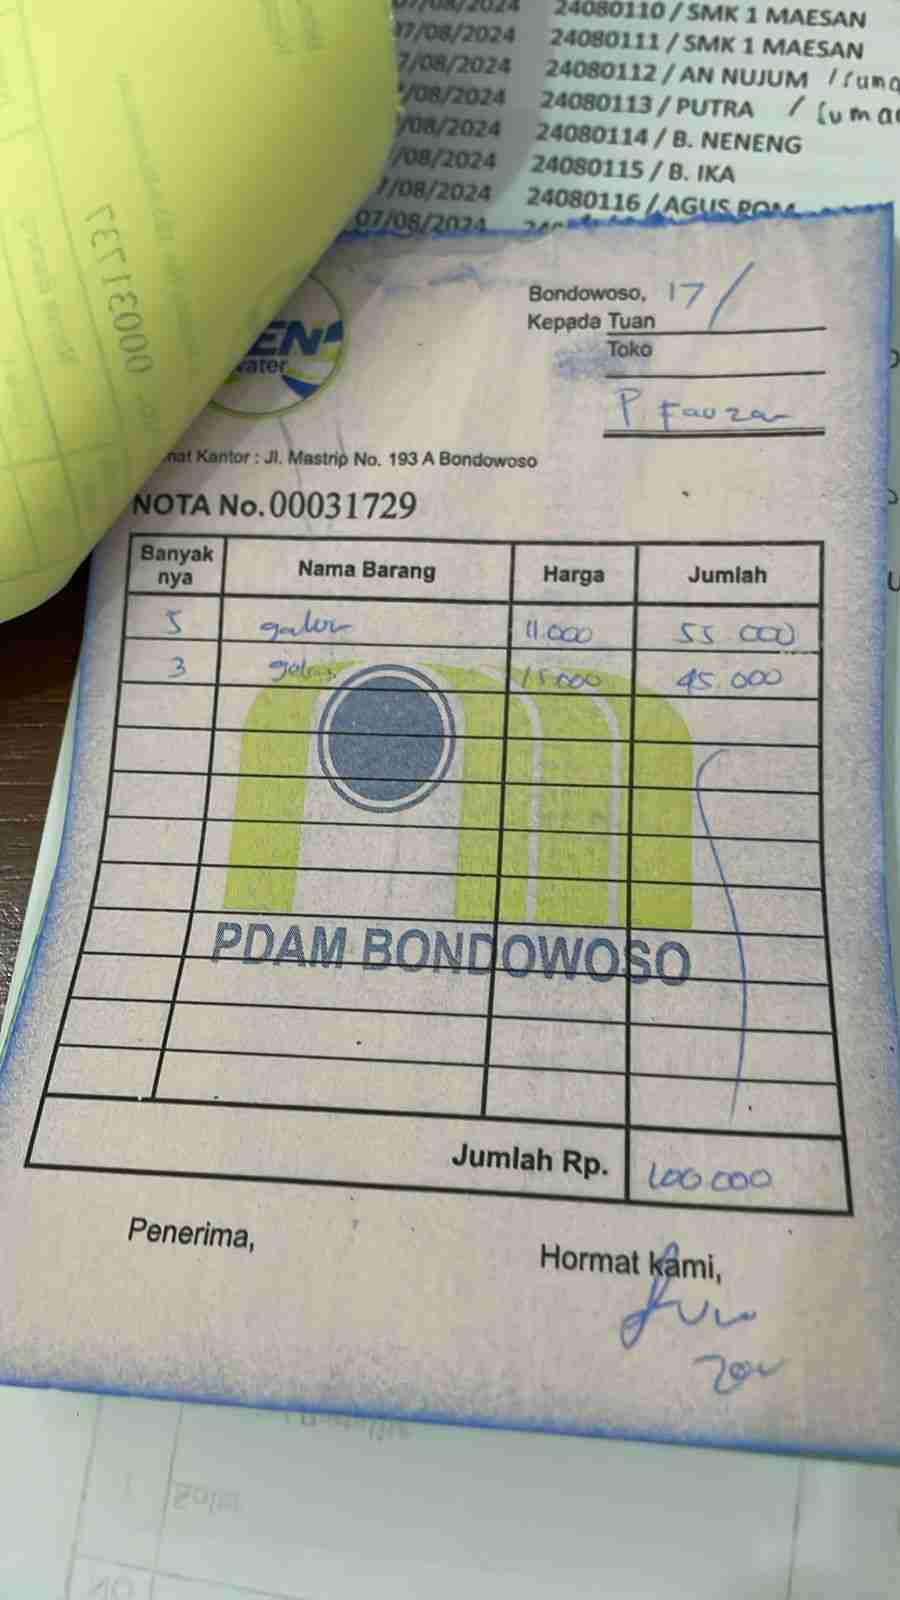 07/08/2024 24080110 / SMK 1 MAESAN
07/08/2024 24080111 / SMK 1 MAESAN
7/08/2024 24080112 / AN NUJUM
/08/2024 24080113 / PUTRA
/08/2024 24080114 / B. NENENG
/08/2024 24080115 / B. IKA
7/08/2024 24080116 / AGUS POM
07/08/2024
00031737
EN
water
Bondowoso, 17/
Kepada Tuan
Toko
P Fauzan
mat Kantor : Jl. Mastrip No. 193 A Bondowoso
NOTA No. 00031729
Banyak nya Nama Barang Harga Jumlah
5 galon 11.000 55 000
3 15.000 45.000
PDAM BONDOWOSO
Jumlah Rp. 100 000
Penerima,
Hormat kami,